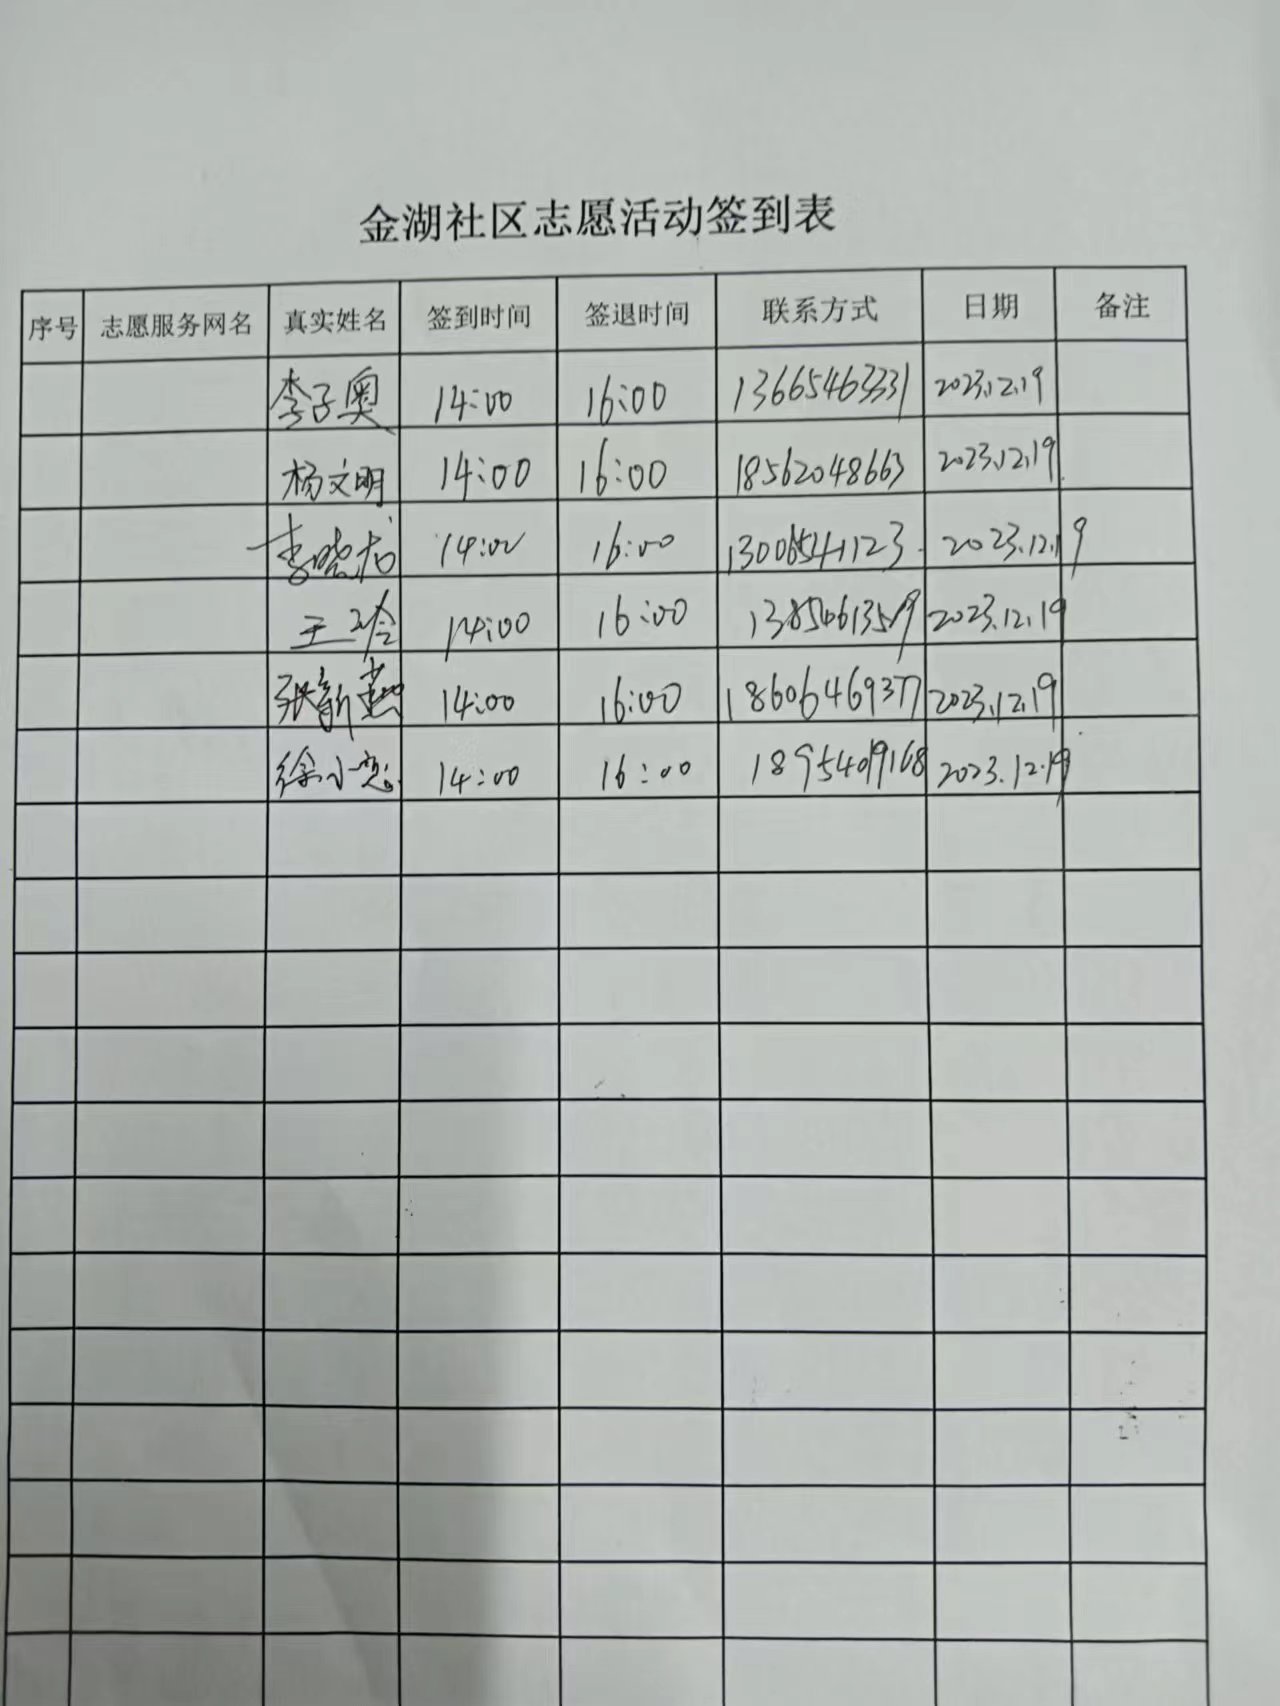 金湖社区志愿活动签到表
序号 志愿服务网名 真实姓名 签到时间 签退时间 联系方式 日期 备注
李子奥 14:00 16:00 13665463331 2023.12.19
杨文明 14:00 16:00 18562048663 2023.12.19
李晓龙 14:00 16:00 13006541123 2023.12.19
王玲 14:00 16:00 13854613519 2023.12.19
张新燕 14:00 16:00 18606469377 2023.12.19
徐小恋 14:00 16:00 18954019168 2023.12.19